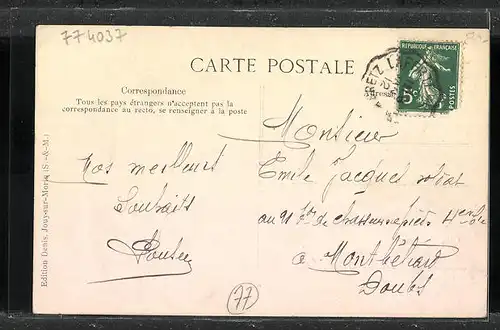 774037
CARTE POSTALE
RÉPUBLIQUE FRANÇAISE
5c
POSTES
Correspondance
Tous les pays étrangers n'acceptent pas la
correspondance au recto, se renseigner à la poste
Monsieur
Nos meilleurs
Souhaits
Emile Jacquet soldat
au 21 de chasseurs à pieds 4e
à Montbéliard
Doubs
77
Edition Denis, Jouy-sur-Morin (S.-&-M.)